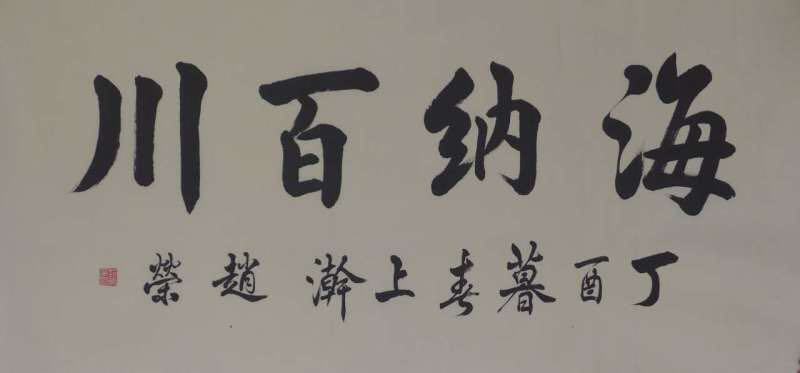 海纳百川
丁酉暮春上瀚趙榮